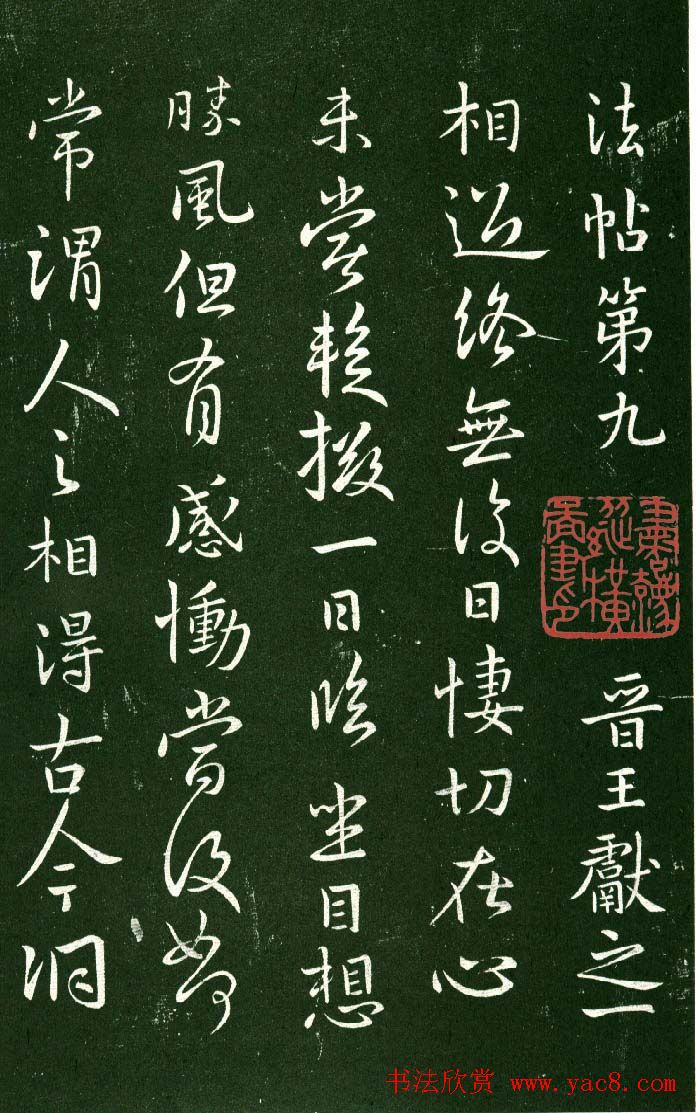 法帖第九 晉王獻之一
相過終無復日悽切在心
未嘗暫掇一日臨坐目想
勝風但有感慟當復如何
常謂人之相得古今洞
书法欣赏 www.yac8.com